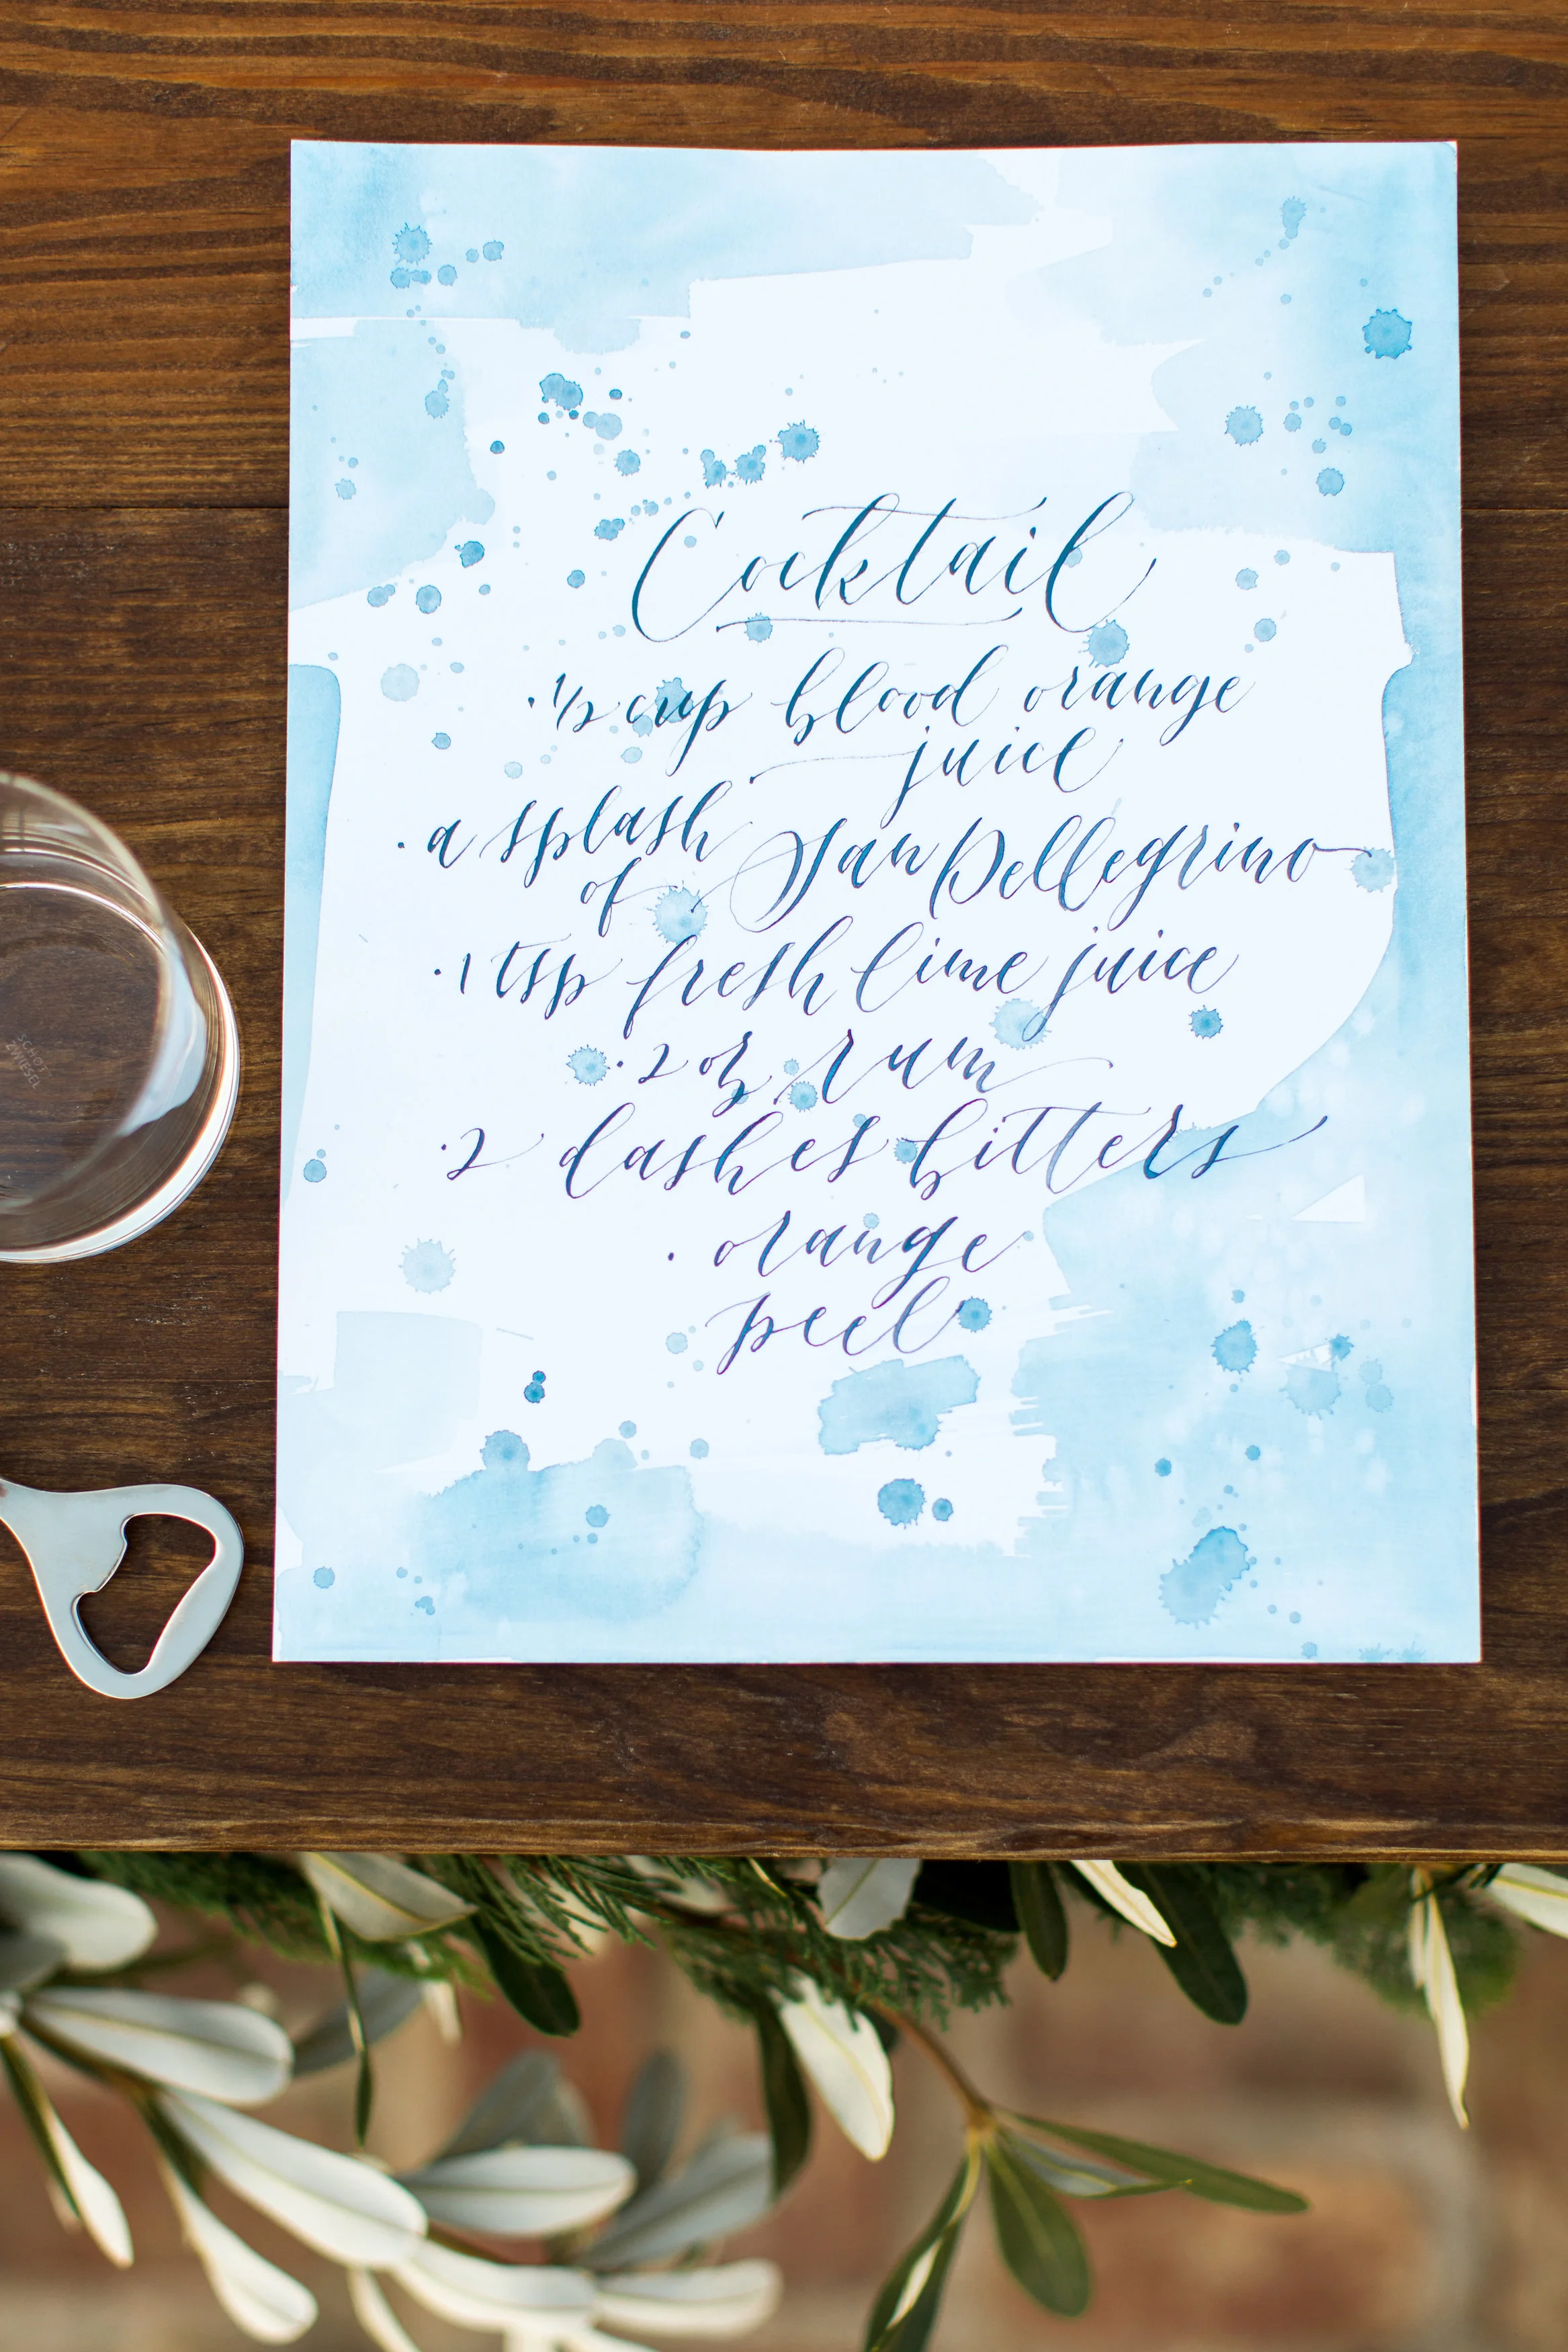 Cocktail
· 1/2 cup blood orange
juice
· a splash
of San Pellegrino
· 1 tsp fresh lime juice
· 2 oz rum
· 2 dashes bitters
· orange
peel
SCHOTT
ZWIESEL